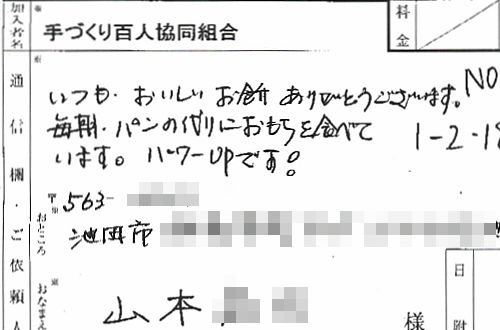 加入者名
手づくり百人協同組合
料金
通信欄・ご依頼人
いつも、おいしいお餅ありがとうございます。
毎朝、パンの代りにおもちを食べて
います。パワーUPです!
NO
1-2-19
おところ
〒563-
池田市
おなまえ
山本
様
日附